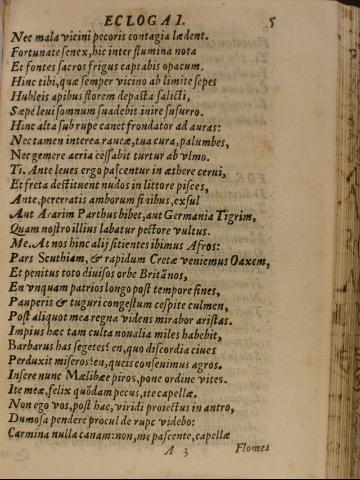 ECLOGA I. 5
Nec mala vicini pecoris contagia lædent.
Fortunate senex, hic inter flumina nota
Et fontes sacros frigus captabis opacum.
Hinc tibi, quæ semper vicino ab limite sepes
Hybleis apibus florem depasta salicti,
Sæpe leui somnum suadebit inire susurro.
Hinc alta sub rupe canet frondator ad auras:
Nec tamen interea raucæ, tua cura, palumbes,
Nec gemere aeria cessabit turtur ab vlmo.
Ti. Ante leues ergo pascentur in æthere cerui,
Et freta destituent nudos in littore pisces,
Ante, pererratis amborum finibus, exsul
Aut Ararim Parthus bibet, aut Germania Tigrim,
Quam nostro illius labatur pectore vultus.
Me. At nos hinc alij sitientes ibimus Afros:
Pars Scythiam, & rapidum Cretæ veniemus Oaxem,
Et penitus toto diuisos orbe Britãnos,
En vnquam patrios longo post tempore fines,
Pauperis & tuguri congestum cespite culmen,
Post aliquot mea regna videns mirabor aristas.
Impius hæc tam culta noualia miles habebit,
Barbarus has segetes: en, quo discordia ciues
Perduxit miseros: en, queis conseuimus agros.
Insere nunc Mœlibœe piros, pone ordine vites.
Ite meæ, felix quõdam pecus, ite capellæ.
Non ego vos, post hac, viridi proiectus in antro,
Dumosa pendere procul de rupe videbo:
Carmina nulla canam: non, me pascente, capellæ
A 3 Flomet